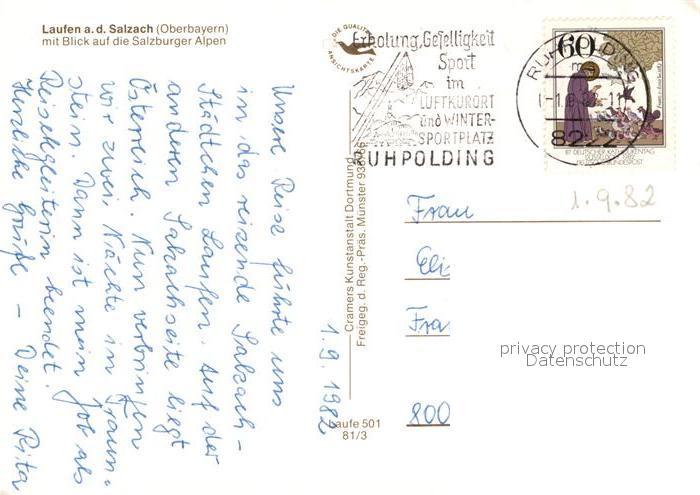 Laufen a. d. Salzach (Oberbayern)
mit Blick auf die Salzburger Alpen
Unsere Reise führte uns
in das reizende Salzach-
Städtchen Laufen. Auf der
anderen Salzachseite liegt
Österreich. Nun verbringen
wir zwei Nächte in Traun-
stein. Dann ist mein Job als
Reisebegleiterin beendet.
Herzliche Grüße – Deine Rita
1.9.1982
DIE QUALITÄTS
ANSICHTSKARTE
Cramers Kunstanstalt Dortmund
Freigeg. d. Reg.-Präs. Münster
Laufe 501
81/3
Erholung, Geselligkeit
Sport
im
LUFTKURORT
und WINTER-
SPORTPLATZ
RUHPOLDING
RUHPOLDING
8222
60
87. DEUTSCHER KATHOLIKENTAG
DEUTSCHE BUNDESPOST
1.9.82
Frau
Eli
Fra
800
privacy protection
Datenschutz